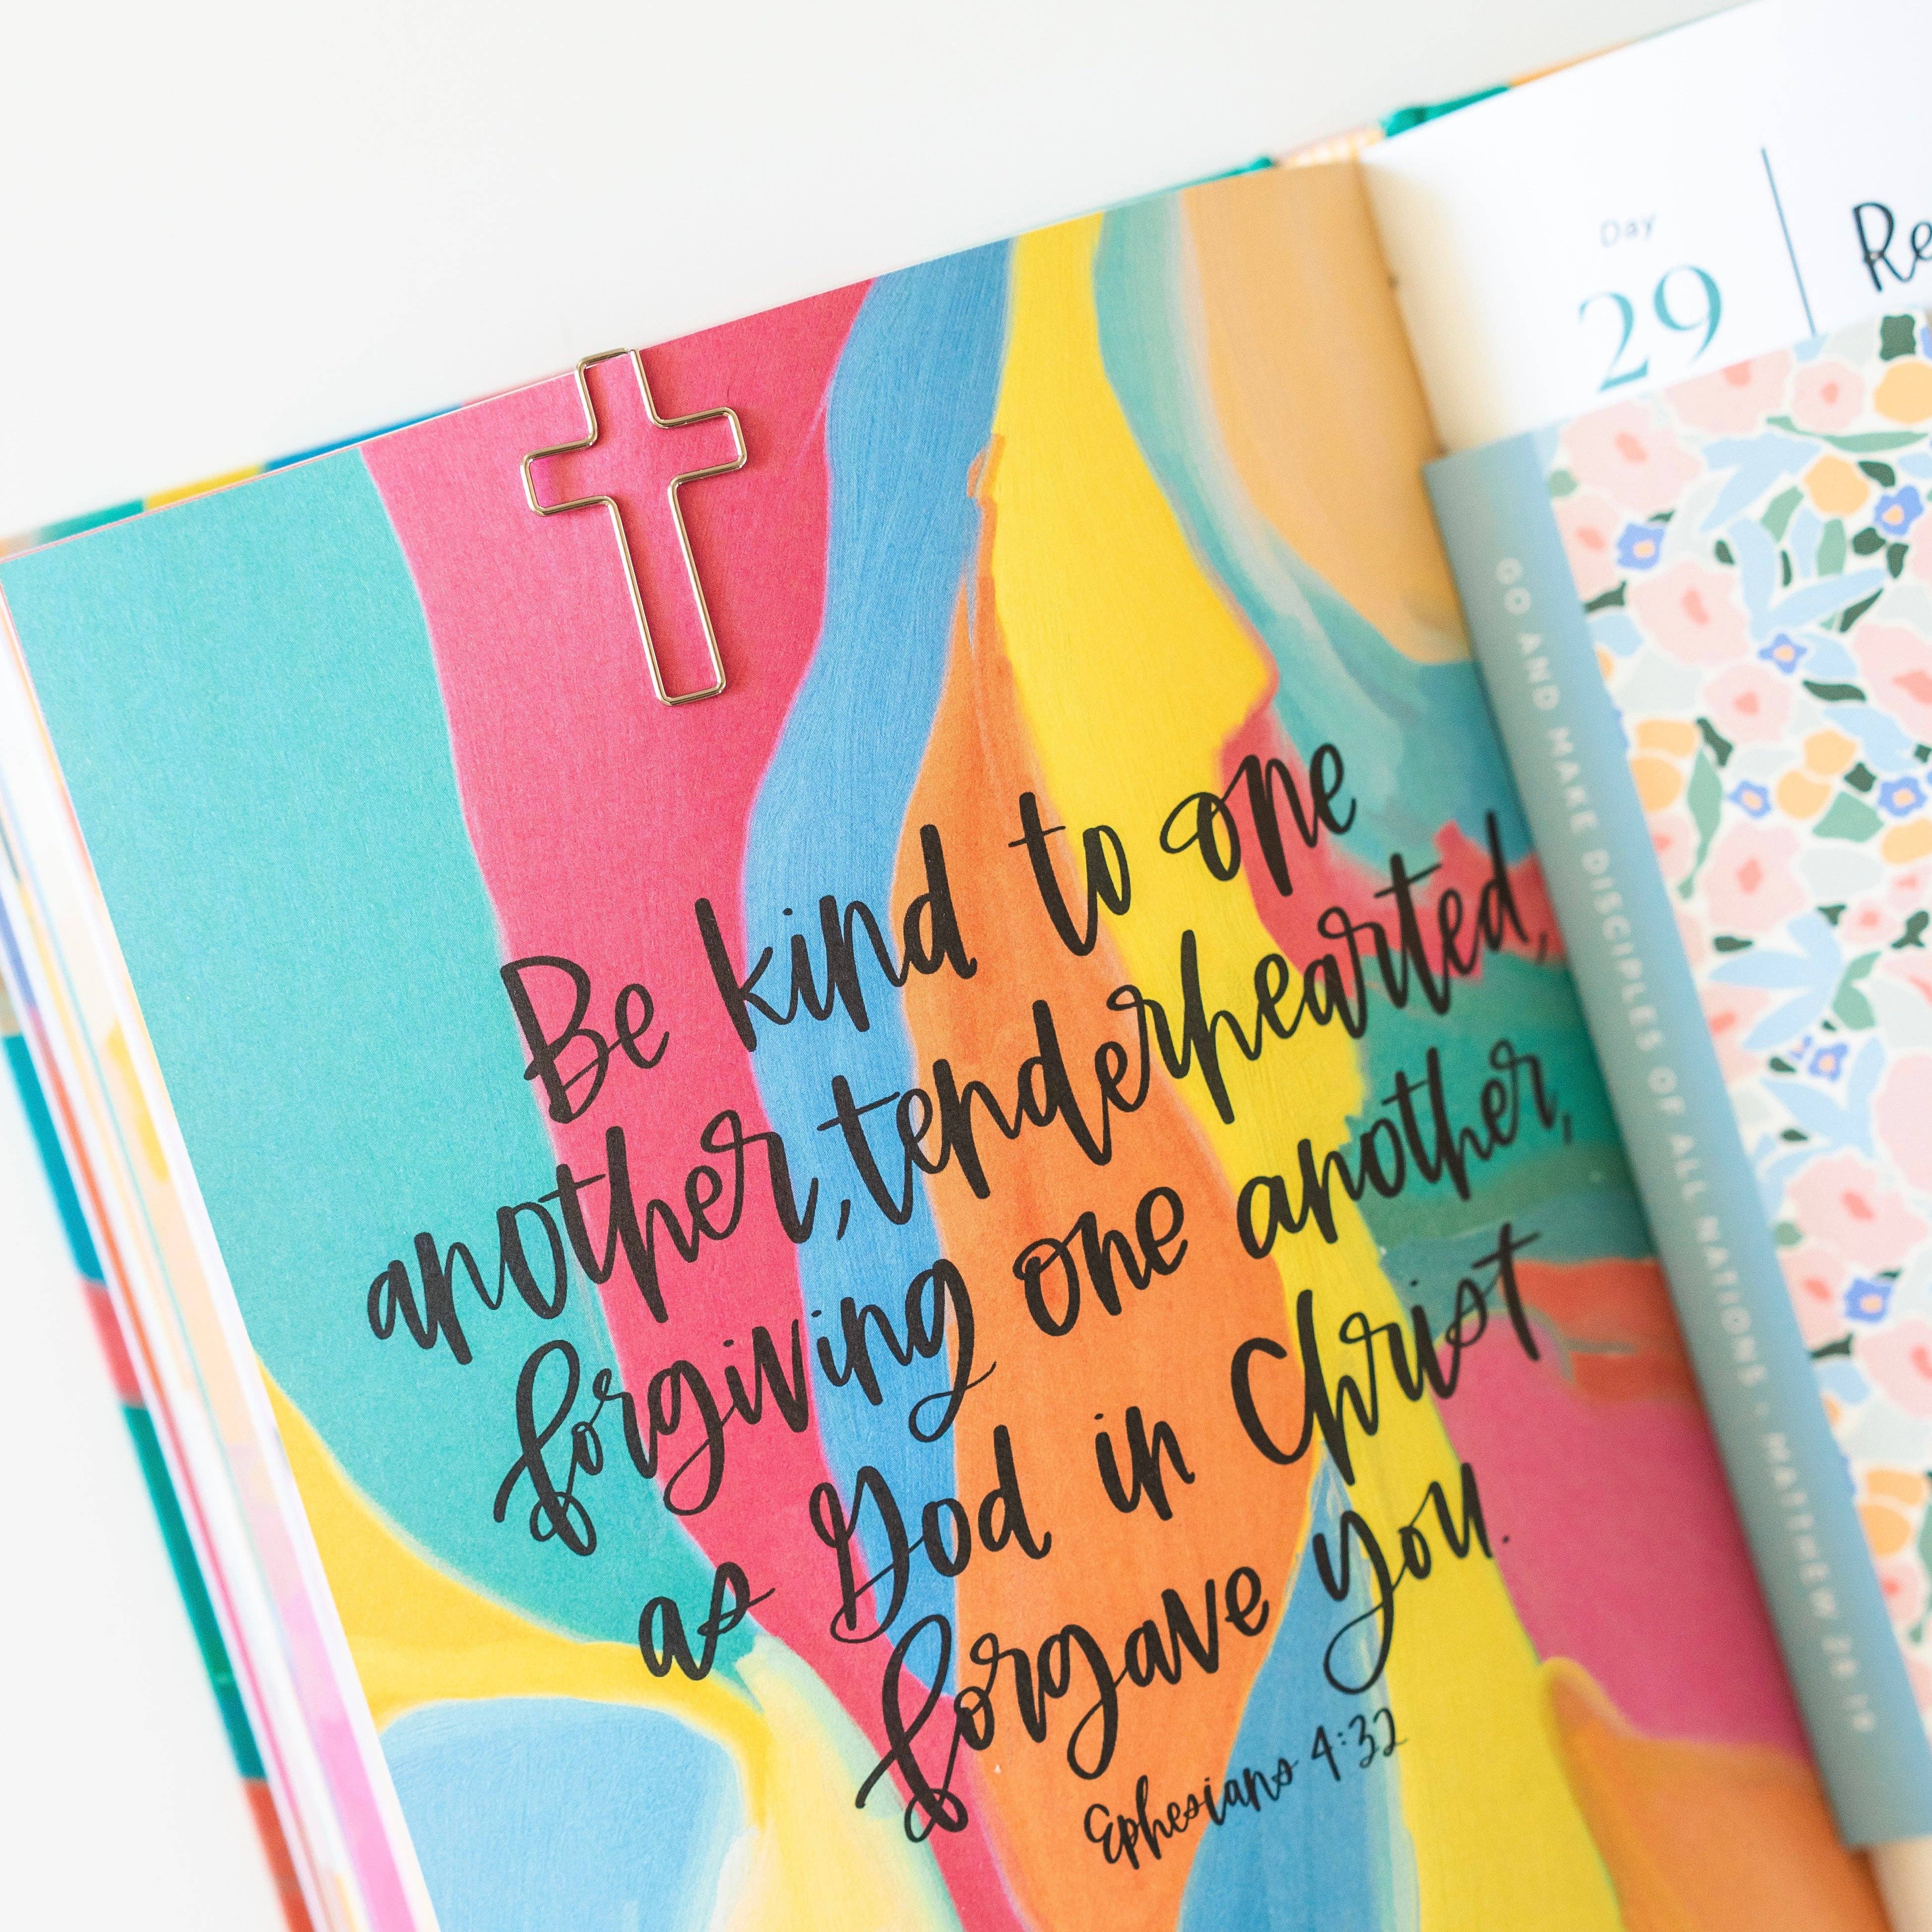 Be kind to one
another, tenderhearted,
forgiving one another,
as God in Christ
forgave you.
Ephesians 4:32
Day
29
Re
GO AND MAKE DISCIPLES OF ALL NATIONS • MATTHEW 28:19